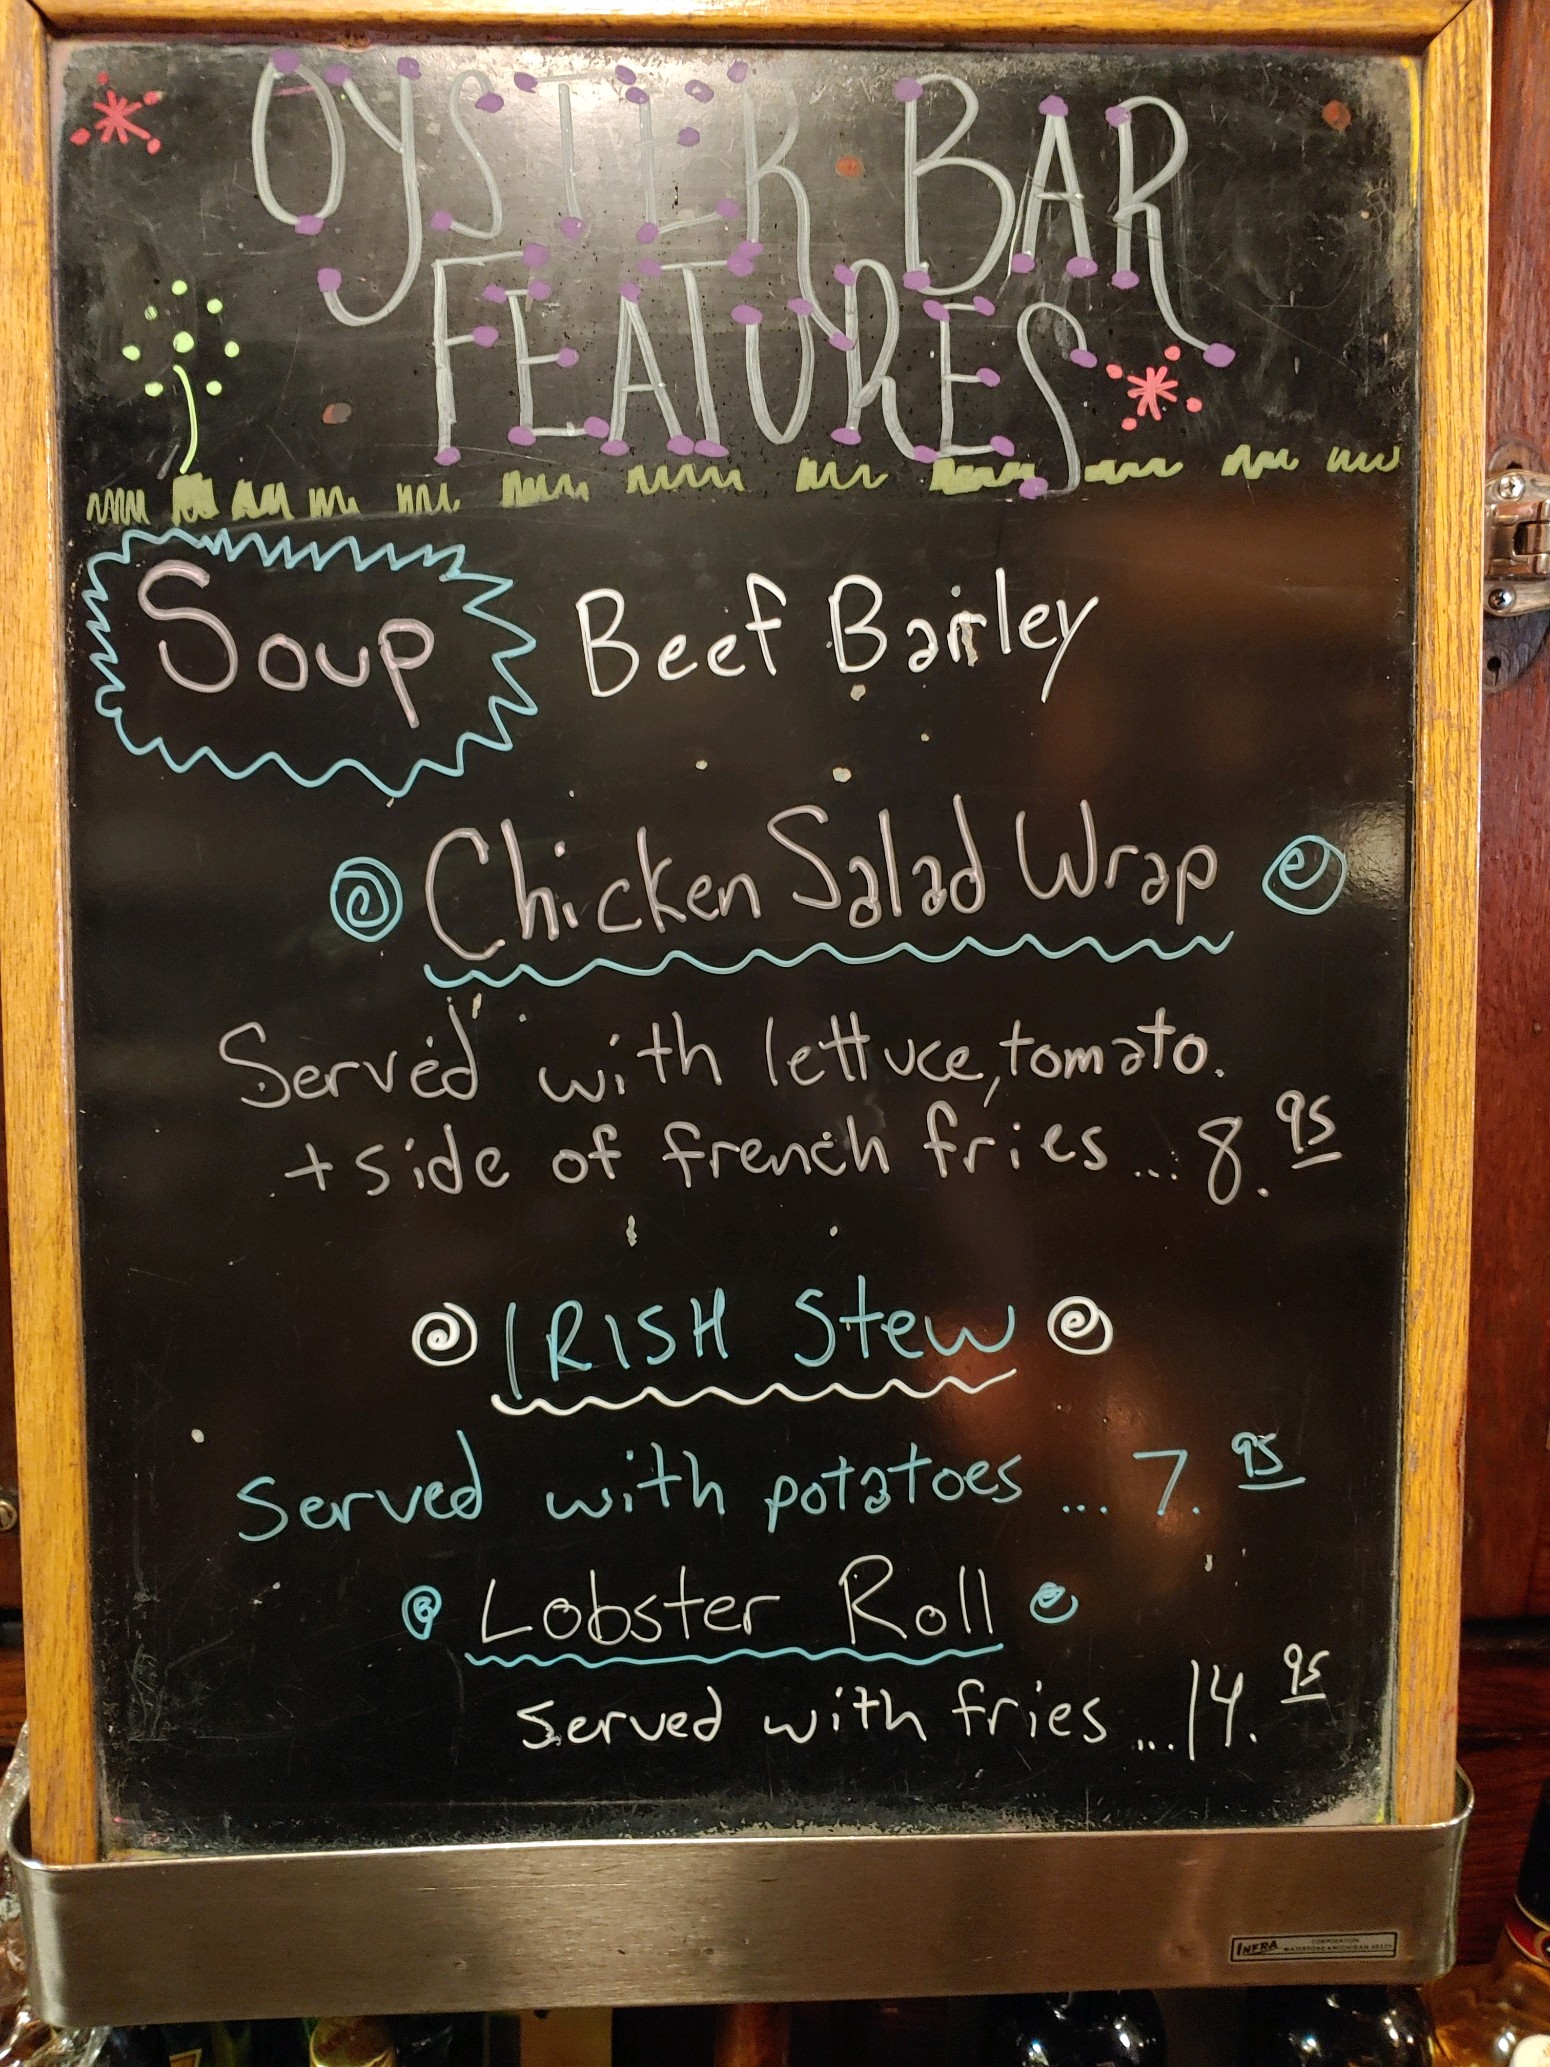 OYSTER BAR
FEATURES
Soup Beef Barley
Chicken Salad Wrap
Served with lettuce, tomato.
+ side of french fries ... 8.95
IRISH Stew
Served with potatoes ... 7.95
Lobster Roll
Served with fries ... 14.95
INFRA CORPORATION
WATERFORD MICHIGAN